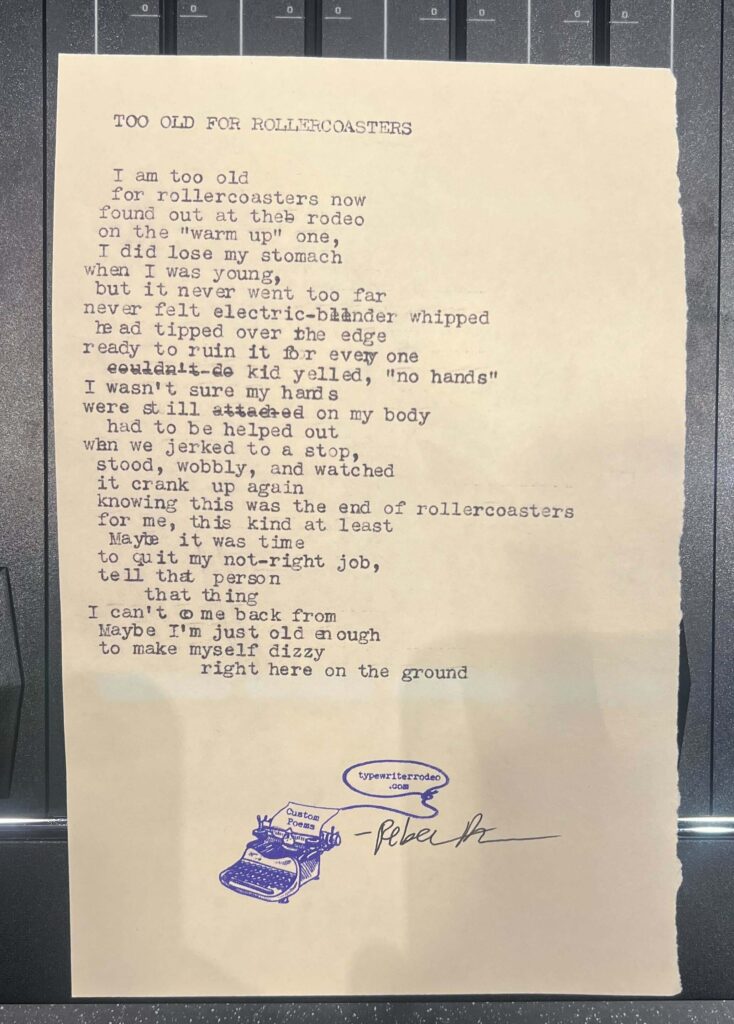 0 0 0 0 0 0 0 0
TOO OLD FOR ROLLERCOASTERS
I am too old
for rollercoasters now
found out at theb rodeo
on the "warm up" one,
I did lose my stomach
when I was young,
but it never went too far
never felt electric-blender whipped
head tipped over the edge
ready to ruin it for every one
couldn't do kid yelled, "no hands"
I wasn't sure my hands
were still attached on my body
had to be helped out
whn we jerked to a stop,
stood, wobbly, and watched
it crank up again
knowing this was the end of rollercoasters
for me, this kind at least
Maybe it was time
to quit my not-right job,
tell that person
that thing
I can't come back from
Maybe I'm just old enough
to make myself dizzy
right here on the ground
typewriterrodeo
.com
Custom
Poems